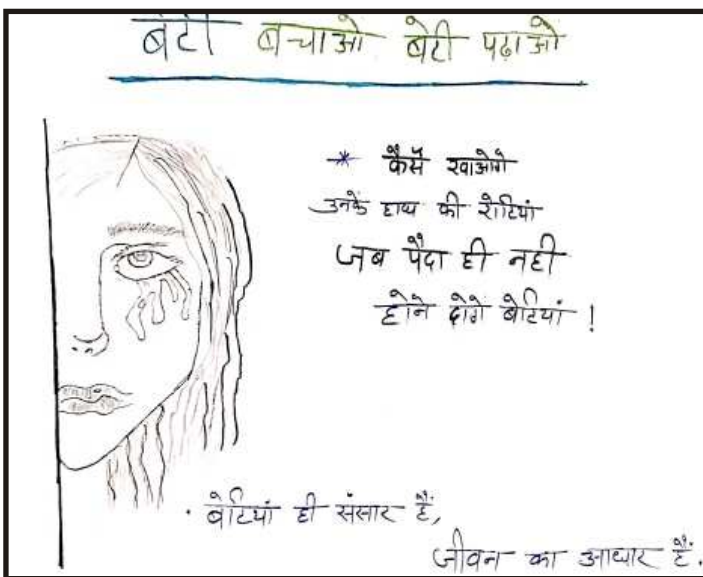 बेटी बचाओ बेटी पढ़ाओ
* कैसे खाओगे
उनके हाथ की रोटियां
जब पैदा ही नही
होने दोगे बेटियां !
· बेटियां ही संसार हैं,
जीवन का आधार हैं.